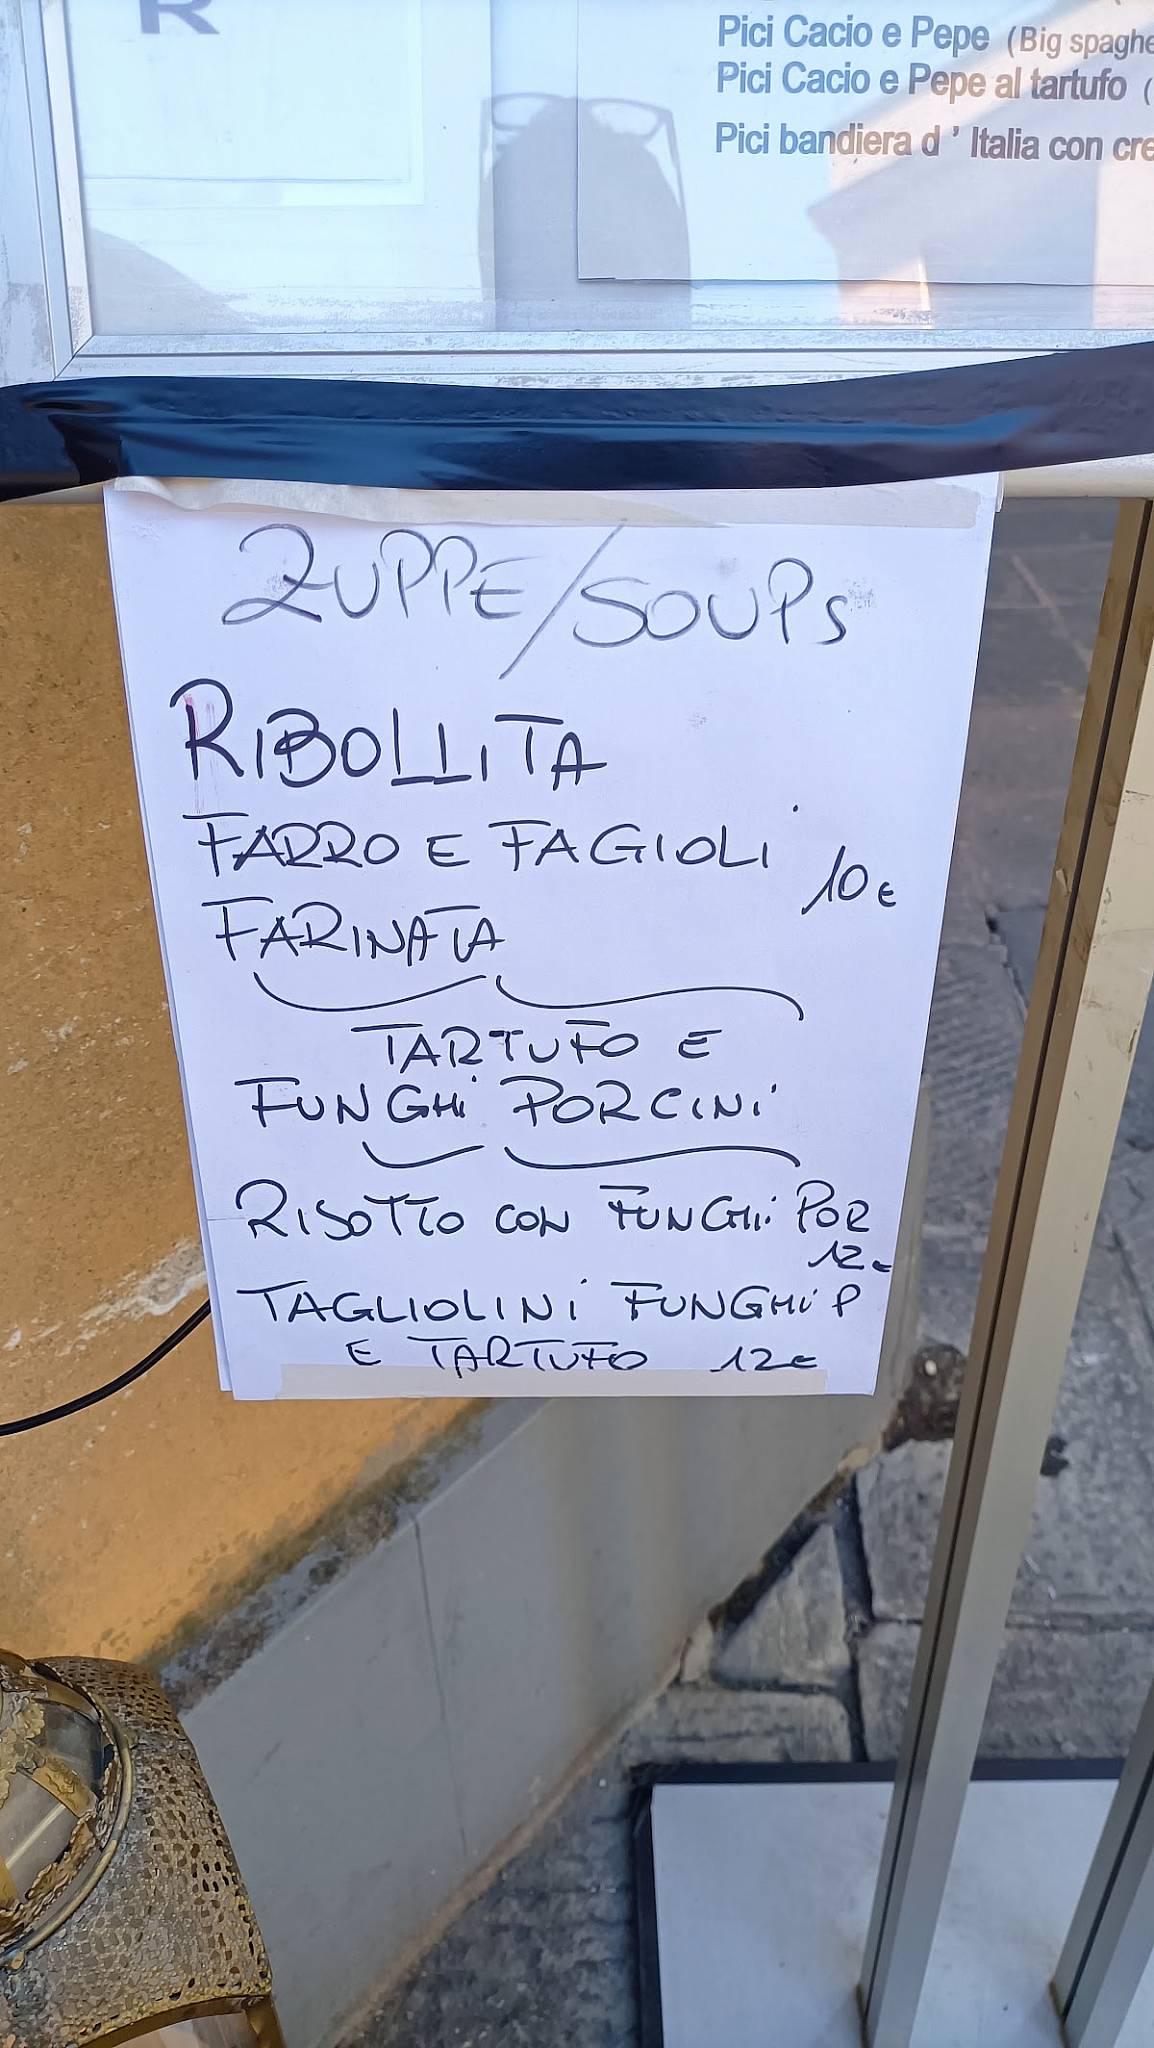 R
Pici Cacio e Pepe (Big spaghe
Pici Cacio e Pepe al tartufo (
Pici bandiera d ' Italia con cre
ZUPPE/SOUPS
RIBOLLITA
FARRO E FAGIOLI 10€
FARINATA
TARTUFO E
FUNGHI PORCINI
RISOTTO CON FUNGHI POR
12€
TAGLIOLINI FUNGHI P
E TARTUFO 12€